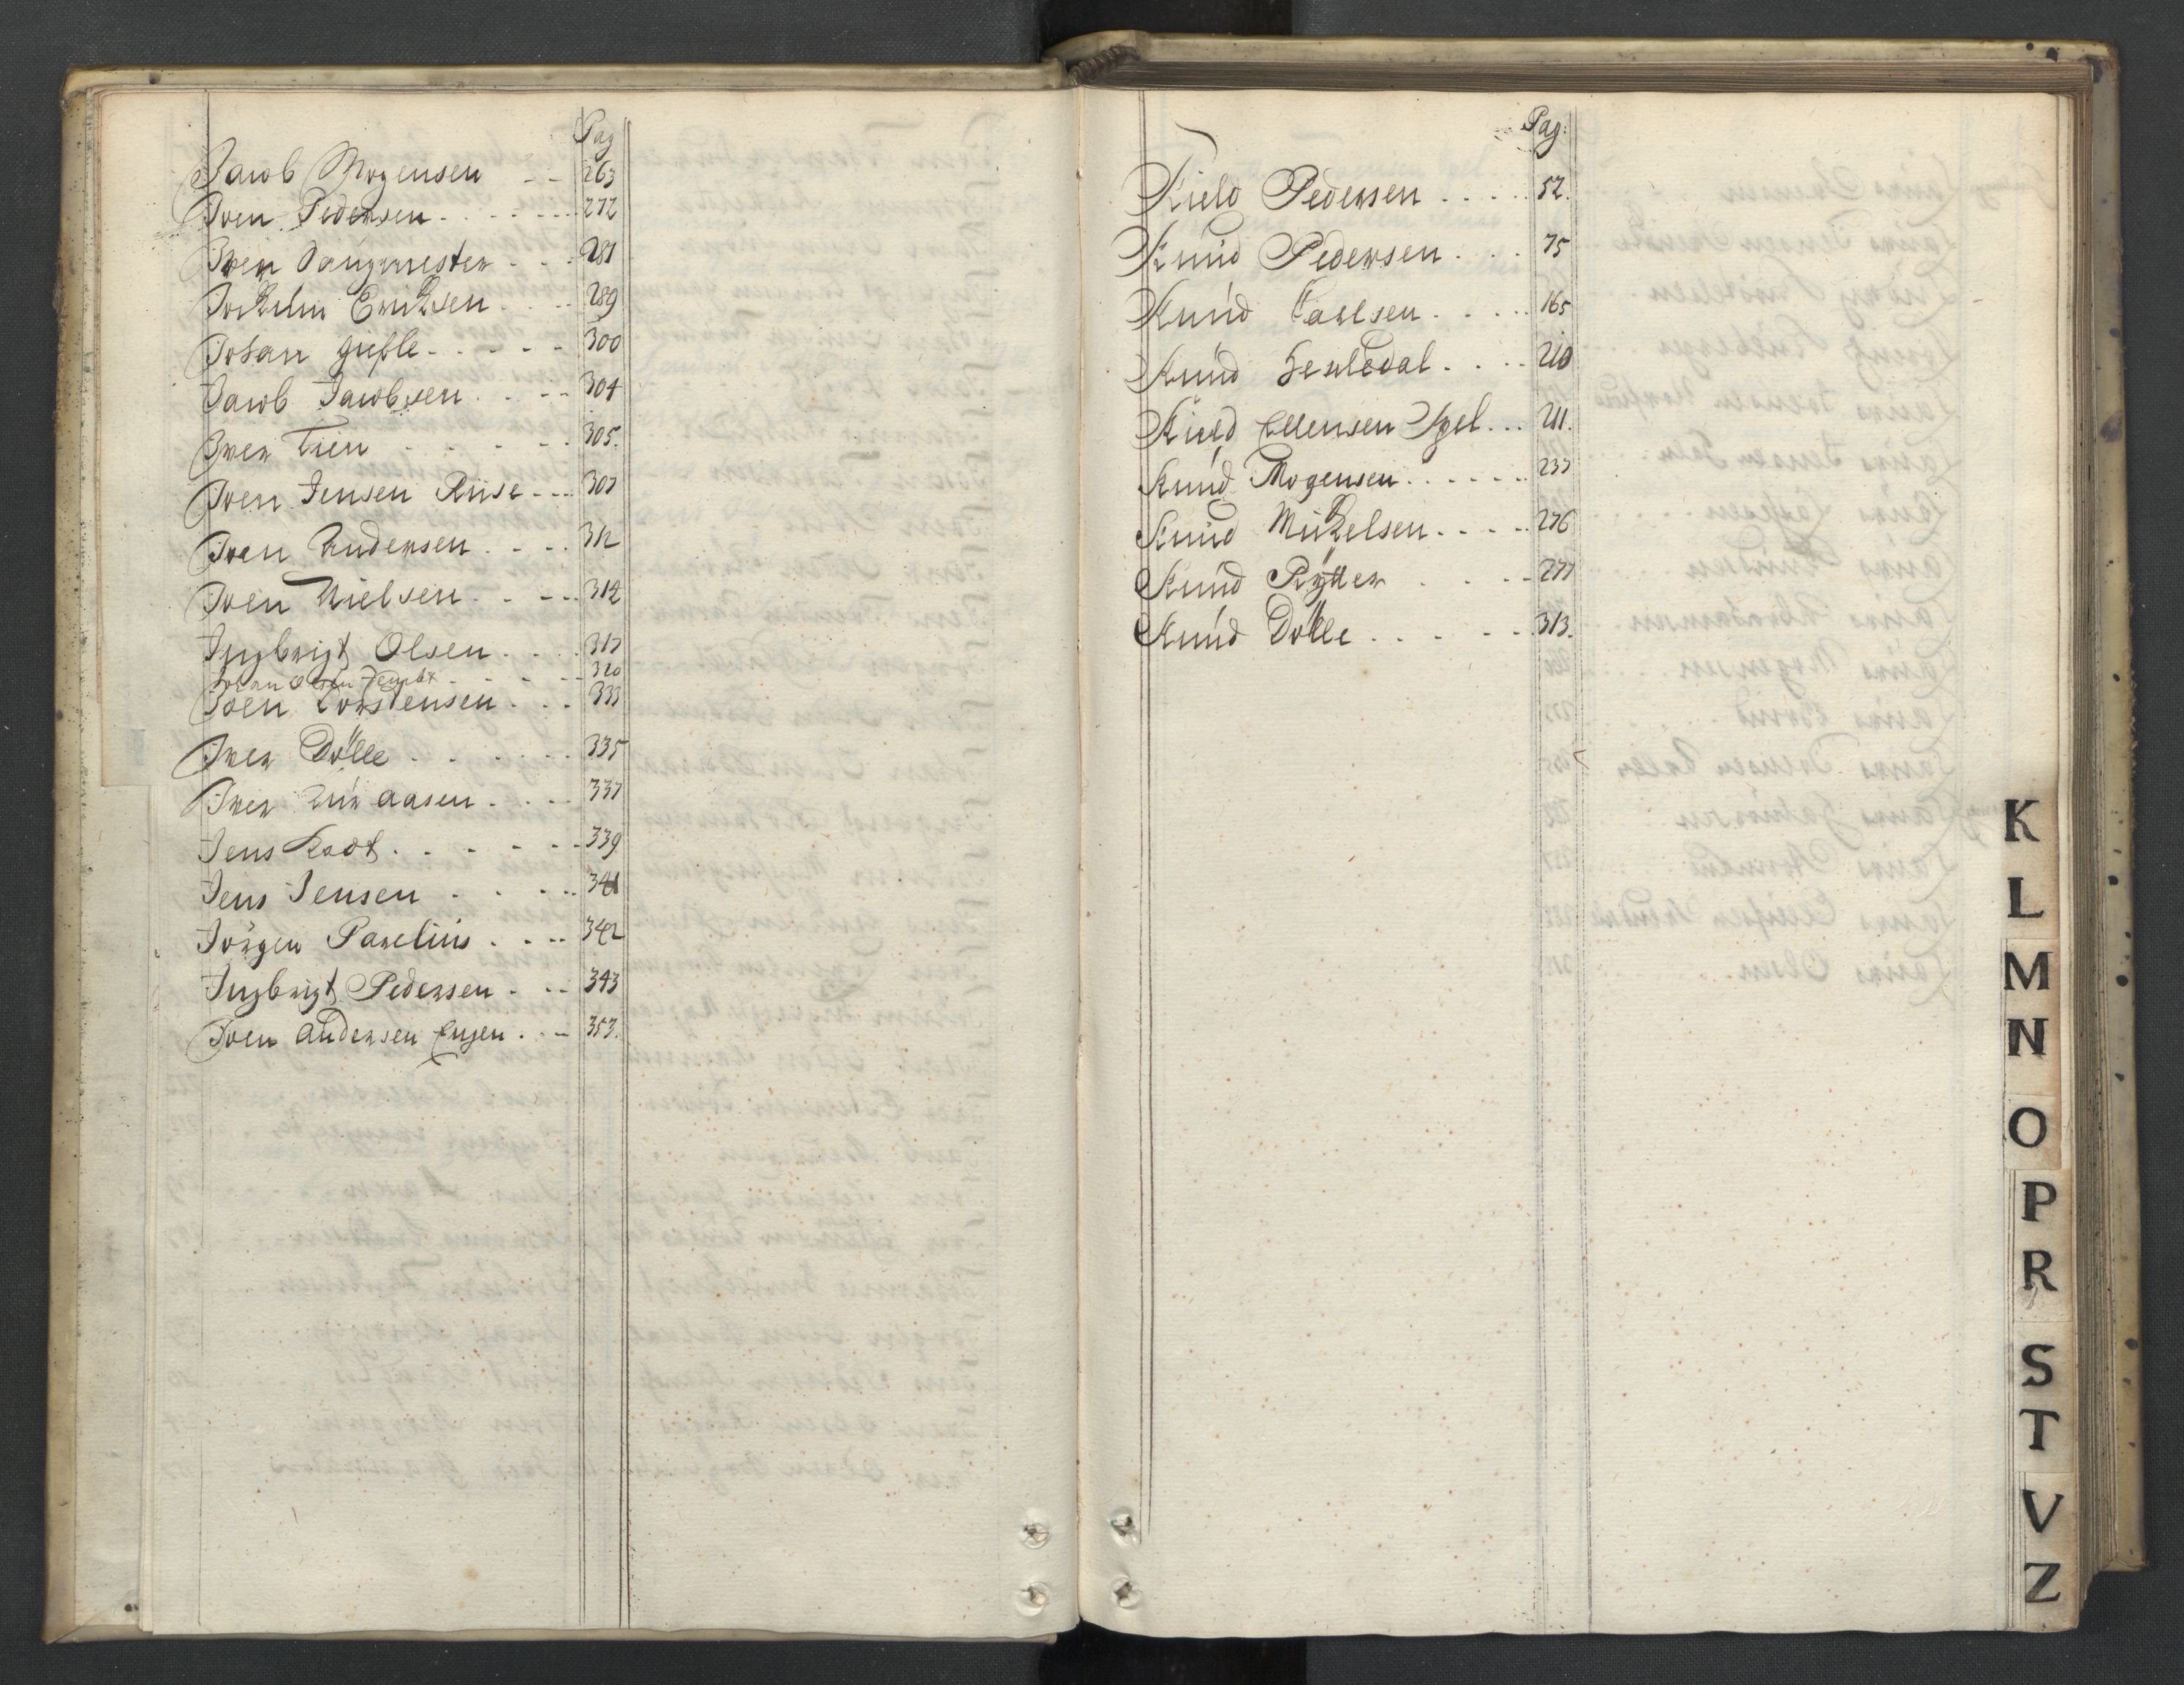 Pag
Jacob Mogensen - - 263
Joen Pedersen - - - 272
Iver - - - 281
Jochum Erichsen - - 289
Johan giefle - - - 300
Jacob Jacobsen - - - 304
Iver Tien - - - 305.
Joen Jensen Riise - - - 307
Joen Andersen - - - 312
Joen Nielsen - - - 314
Ingbrigt Olsen - - - 317
Johan - - - 320
Joen Torstensen - - - 333
Iver Dölle - - - 335
Iver aasen - - - 337
Jens Kodt - - - 339
Jens Jensen - - - 341
Jörgen Parelius - - - 342
Ingbrigt Pedersen - - - 343
Joen Andersen Engen - - - 353.
Pag:
Kield Pedersen - - - 52.
Knud Pedersen - - - 75
Knud Carlsen - - - 165
Knud - - - 210
Kield Ellensen - - - 211.
Knud Mogensen - - - 237
Knud Michelsen - - - 276
Knud Rÿtter - - - 277
Knud Dölle - - - 313.
K
L
M
N
O
P
R
S
T
V
Z